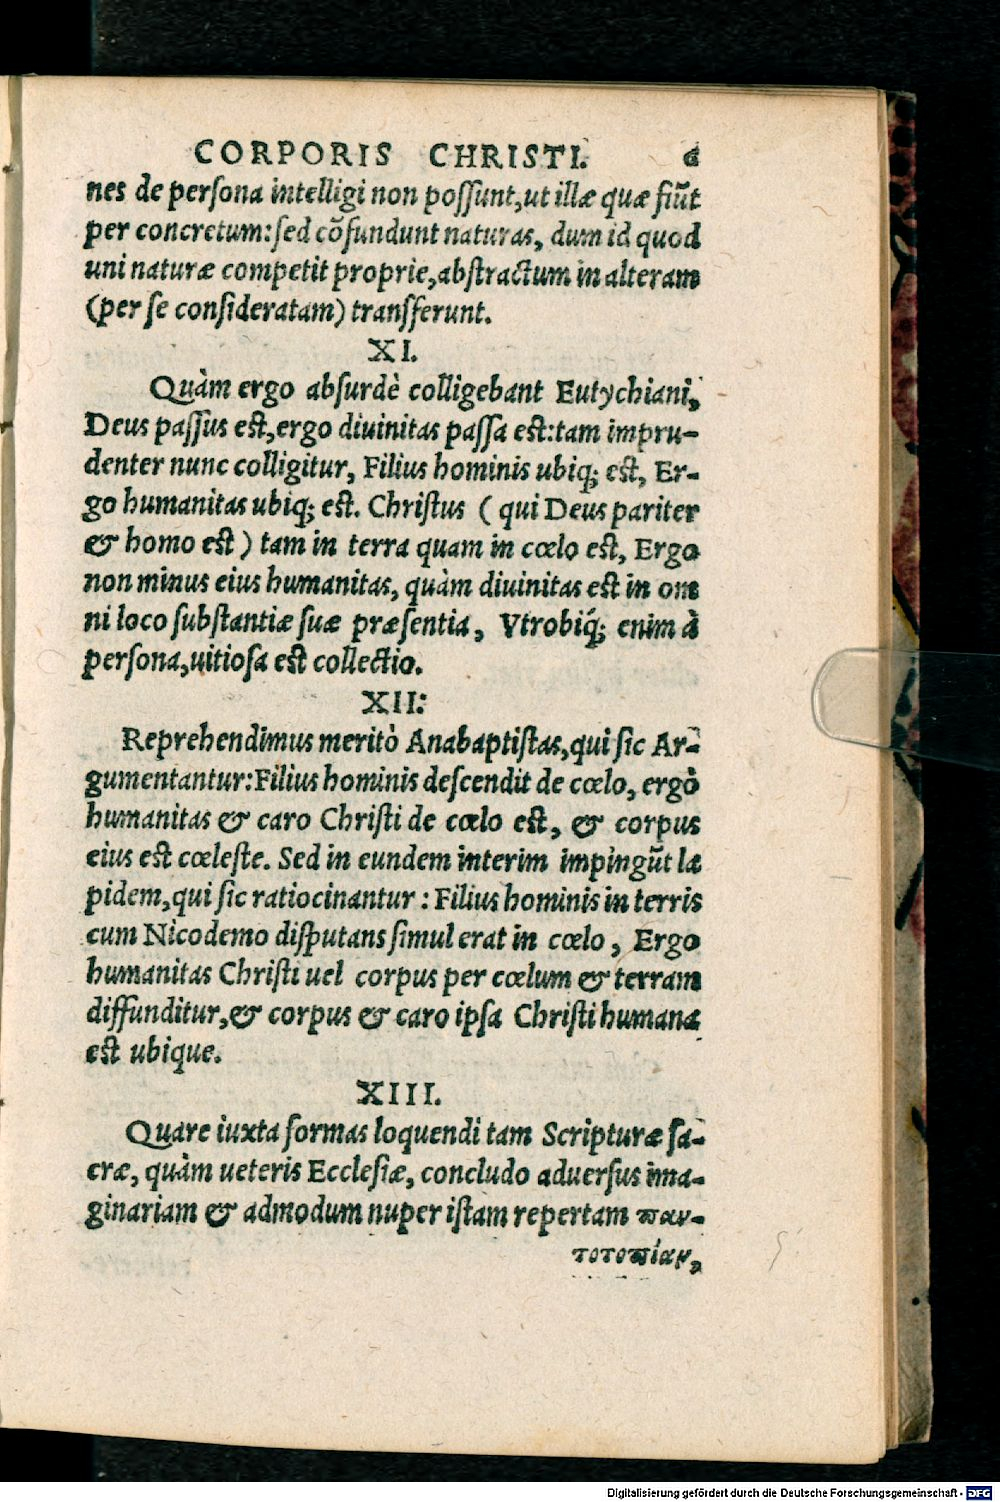 CORPORIS CHRISTI. 6
nes de perſona intelligi non poſſunt, ut illæ quæ fiũt
per concretum: ſed cõfundunt naturas, dum id quod
uni naturæ competit proprie, abſtractum in alteram
(per ſe conſideratam) transferunt.
XI.
Quàm ergo abſurdè colligebant Eutychiani,
Deus paſſus eſt, ergo diuinitas paſſa eſt: tam impru-
denter nunc colligitur, Filius hominis ubiq; eſt, Er-
go humanitas ubiq; eſt. Chriſtus (qui Deus pariter
& homo eſt) tam in terra quam in cœlo eſt, Ergo
non minus eius humanitas, quàm diuinitas eſt in om
ni loco ſubſtantiæ ſuæ præſentia, Vtrobiq́; enim à
perſona, uitioſa eſt collectio.
XII:
Reprehendimus meritò Anabaptiſtas, qui ſic Ar-
gumentantur: Filius hominis deſcendit de cœlo, ergò
humanitas & caro Chriſti de cœlo eſt, & corpus
eius eſt cœleſte. Sed in eundem interim impingũt la
pidem, qui ſic ratiocinantur: Filius hominis in terris
cum Nicodemo diſputans ſimul erat in cœlo, Ergo
humanitas Chriſti uel corpus per cœlum & terram
diffunditur, & corpus & caro ipſa Chriſti humana
eſt ubique.
XIII.
Quare iuxta formas loquendi tam Scripturæ ſa-
cræ, quàm ueteris Eccleſiæ, concludo aduerſus ima-
ginariam & admodum nuper iſtam repertam παν-
τοτοπίαν,
Digitalisierung gefördert durch die Deutsche Forschungsgemeinschaft - DFG